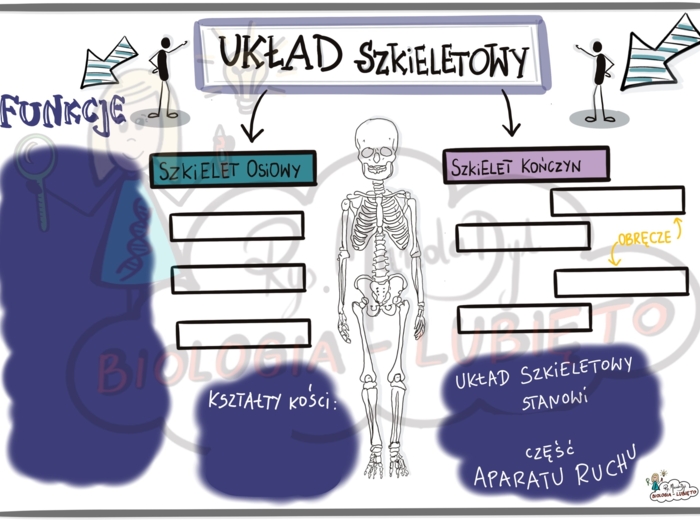 UKŁAD SZKIELETOWY
FUNKCJE
SZKIELET OSIOWY
SZKIELET KOŃCZYN
OBRĘCZE
BIOLOGIA - LUBIĘTO
KSZTAŁTY KOŚCI:
UKŁAD SZKIELETOWY
STANOWI
CZĘŚĆ
APARATU RUCHU
BIOLOGIA - LUBIĘTO